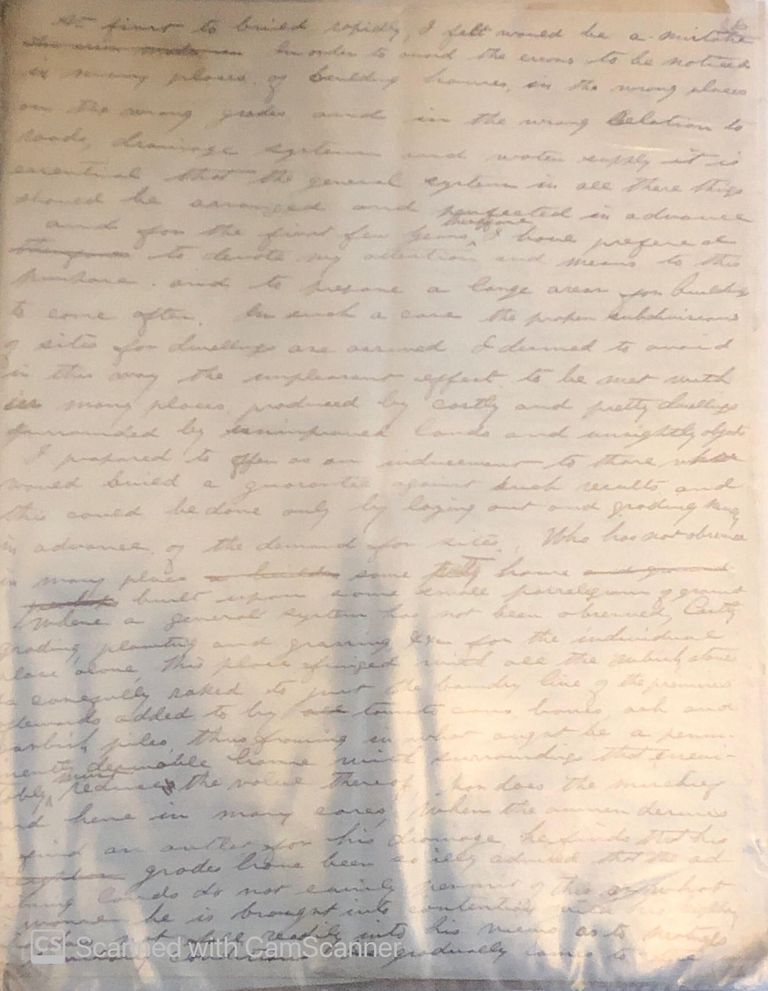 At first to build rapidly, I felt would be a mistake
In order to avoid the errors to be noticed
in many places of building houses, in the wrong places
on the wrong grades and in the wrong Relation to
roads, drainage systems and water supply it is
essential that the general system in all these things
should be arranged and perfected in advance
and for the first few years, therefore I have prefered
therefore to devote my attention and means to this
purpose. and to prepare a large area for building
to come after. In such a case the proper subdivisions
of sites for dwellings are assured I desired to avoid
in this way the unpleasant effect to be met with
in many places, produced by costly and pretty dwellings
surrounded by unimproved lands and unsightly objects
I prepared to offer as an inducement to those who
would build a guarantee against such results and
this could be done only by laying out and grading
in advance of the demand for sites. Who has not observed
in many place a some pretty home and ground
perhaps built upon some small parallelogram of ground
where a general system has not been observed, Costly
grading planting and grassing for the individual
place alone, this place fringed with all the rubbish, stones
carefully raked to just the boundry line of the premises
afterwards added to by old tomato cans bones, ash and
rubbish piles, thus forming in what ought be a perma-
nently desirable home with surroundings that
must reduce the value thereof. Nor does the mischief
end here in many cases, When the owner desires
find an outlet for his drainage he finds that his
grades have been so illy advised that the ad-
lands do not easily permit of this
he is brought into contention with
not readily into his views as to
gradually comes to
CS Scanned with CamScanner